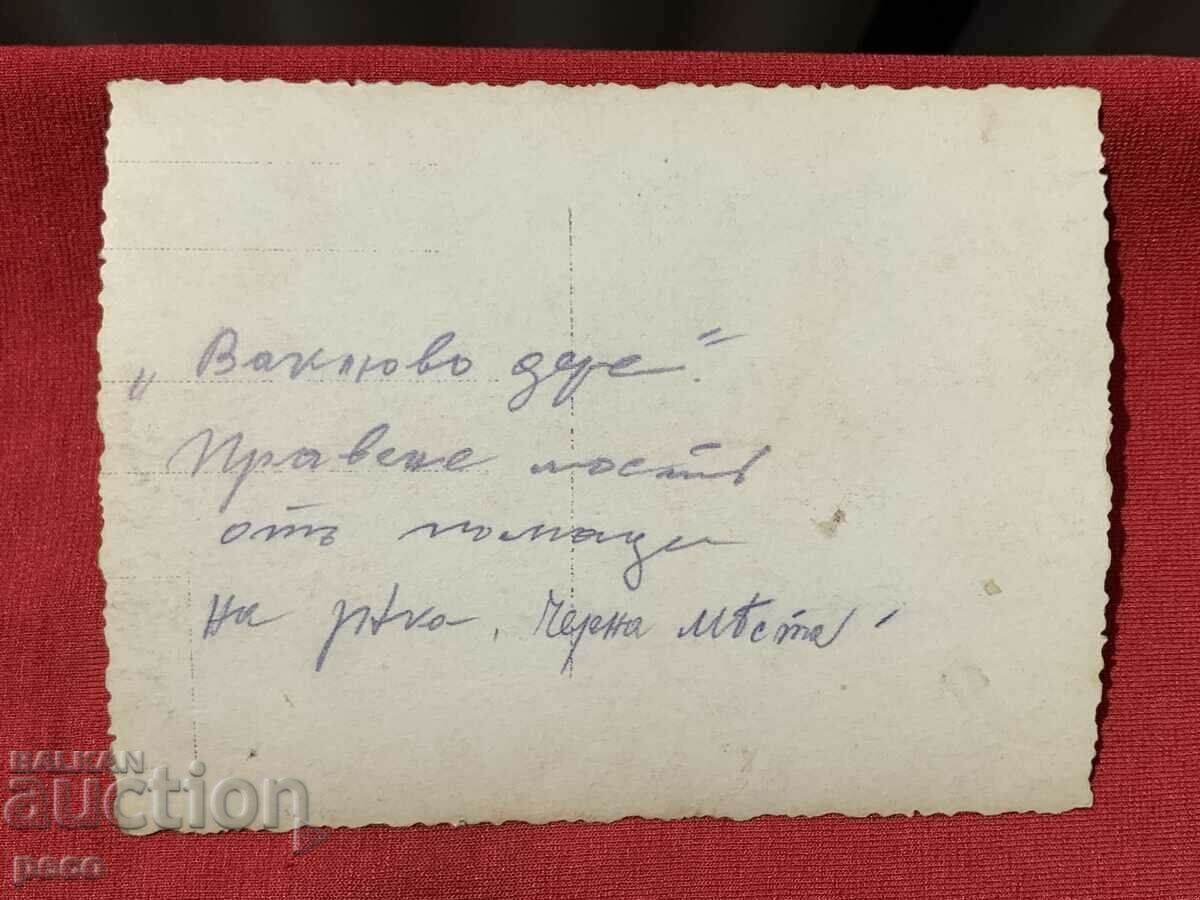 „Ваклюво дере".
Правене мостъ
отъ помаци
на рѣка „Черна Мѣста"
BALKAN
auction
peso